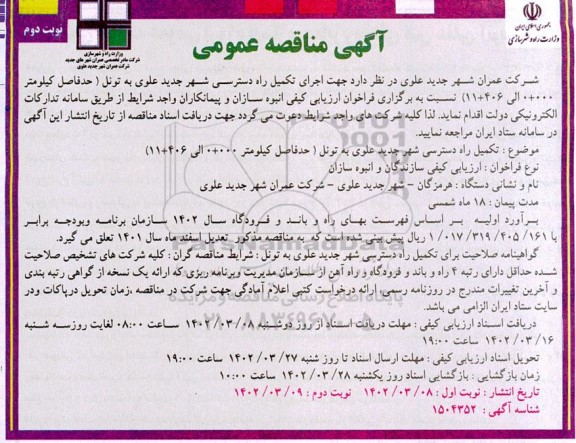 نوبت دوم
جمهوری اسلامی ایران
وزارت راه و شهرسازی
وزارت راه و شهرسازی
شرکت مادر تخصصی عمران شهرهای جدید
شرکت عمران شهر جدید علوی
آگهی مناقصه عمومی
شرکت عمران شهر جدید علوی در نظر دارد جهت اجرای تکمیل راه دسترسی شهر جدید علوی به تونل ( حدفاصل کیلومتر
۰۰۰+۰ الی ۴۰۶+۱۱) نسبت به برگزاری فراخوان ارزیابی کیفی انبوه سازان و پیمانکاران واجد شرایط از طریق سامانه تدارکات
الکترونیکی دولت اقدام نماید. لذا کلیه شرکت های واجد شرایط دعوت می گردد جهت دریافت اسناد مناقصه از تاریخ انتشار این آگهی
در سامانه ستاد ایران مراجعه نمایید.
موضوع : تکمیل راه دسترسی شهر جدید علوی به تونل ( حدفاصل کیلومتر ۰۰۰+۰ الی ۴۰۶+۱۱)
نوع فراخوان : ارزیابی کیفی سازندگان و انبوه سازان
نام و نشانی دستگاه : هرمزگان – شهر جدید علوی – شرکت عمران شهر جدید علوی
مدت پیمان : ۱۸ ماه شمسی
برآورد اولیه بر اساس فهرست بهای راه و باند و فرودگاه سال ۱۴۰۲ سازمان برنامه وبودجه برابر
با ۱/۰۱۷/۳۱۹/۴۰۵/۱۶۱ ریال پیش بینی شده است که به مناقصه مذکور تعدیل اسفند ماه سال ۱۴۰۱ تعلق می گیرد.
گواهینامه صلاحیت برای تکمیل راه دسترسی شهر جدید علوی به تونل : شرایط مناقصه گران : کلیه شرکت های تشخیص صلاحیت
شده حداقل دارای رتبه ۴ راه و باند و فرودگاه و راه آهن از سازمان مدیریت وبرنامه ریزی که ارائه یک نسخه از گواهی رتبه بندی
و آخرین تغییرات مندرج در روزنامه رسمی ارائه درخواست کتبی اعلام آمادگی جهت شرکت در مناقصه ،زمان تحویل درپاکات ودر
سایت ستاد ایران الزامی می باشد.
دریافت اسناد ارزیابی کیفی : مهلت دریافت اسناد از روز دوشنبه ۱۴۰۲/۰۳/۰۸ ساعت ۰۸:۰۰ لغایت روزسه شنبه
۱۴۰۲/۰۳/۱۶ ساعت ۱۹:۰۰
تحویل اسناد ارزیابی کیفی : مهلت ارسال اسناد تا روز شنبه ۱۴۰۲/۰۳/۲۷ ساعت ۱۹:۰۰
زمان بازگشایی : بازگشایی اسناد روز یکشنبه ۱۴۰۲/۰۳/۲۸ ساعت ۱۰:۰۰
تاریخ انتشار : نوبت اول : ۱۴۰۲/۰۳/۰۸ نوبت دوم : ۱۴۰۲/۰۳/۰۹
شناسه آگهی : ۱۵۰۴۳۵۲